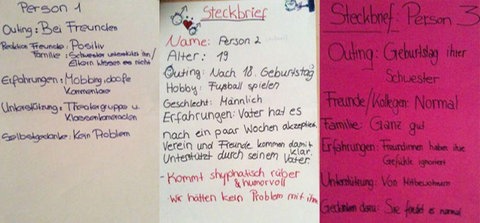 Person 1
Outing: Bei Freunden
Reaktion Freunde: Positiv
Familie: Schwester unterstützt ihn/
Eltern wissen es nicht
Erfahrungen: Mobbing, doofe
Kommentare
Unterstützung: Theatergruppe u.
Klassenkameraden
Selbstgedanke: Kein Problem
Steckbrief
Name: Person 2
Alter: 19
Outing: Nach 18. Geburtstag
Hobby: Fußball spielen
Geschlecht: Männlich
Erfahrungen: Vater hat es
nach ein paar Wochen akzeptiert,
Verein und Freunde kommen damit
klar.
Unterstützt durch seinem Vater.
- Kommt shyphatisch rüber
& humorvoll
- Wir hatten kein Problem mit ihm
Steckbrief Person 3
Outing: Geburtstag ihrer
Schwester
Freunde/Kollegen: Normal
Familie: Ganz gut
Erfahrungen: Freundinnen haben ihre
Gefühle ignoriert
Unterstützung: Von Mitbewohnern
Gedanken dazu: Sie findet es normal